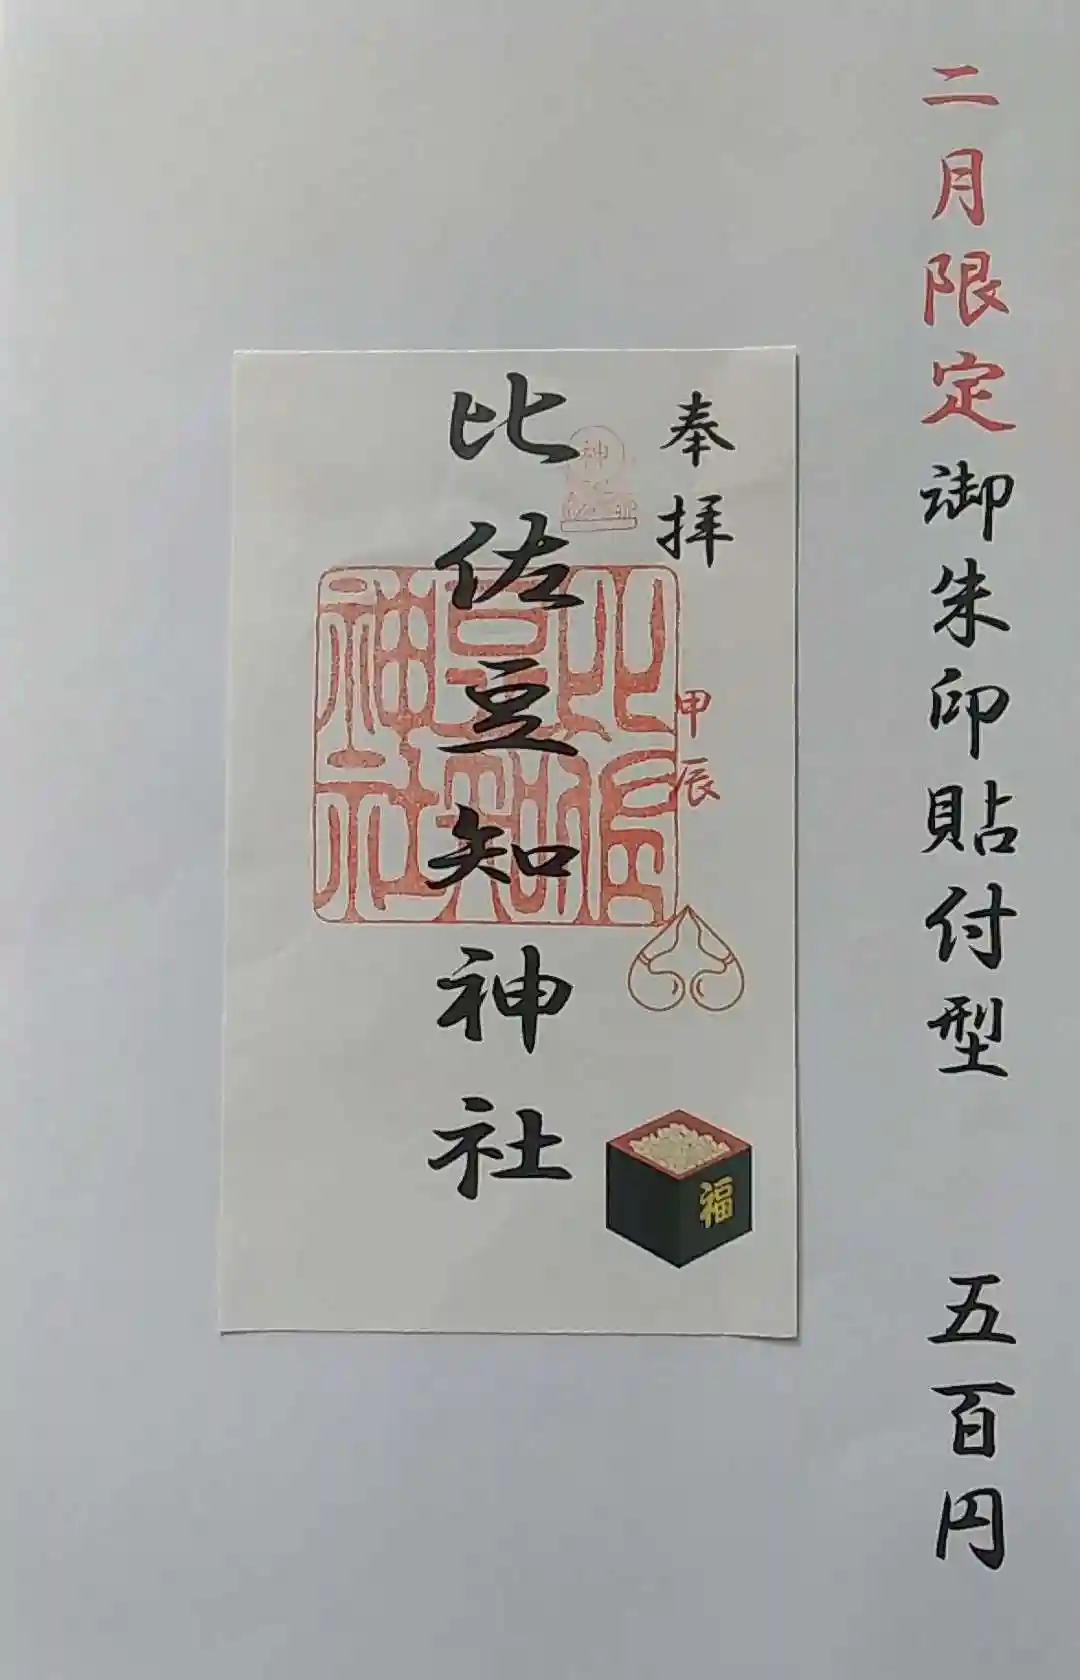 二月限定御朱印貼付型 五百円
奉拝
甲辰
福
神
比佐豆知神社
比佐
豆知
神社